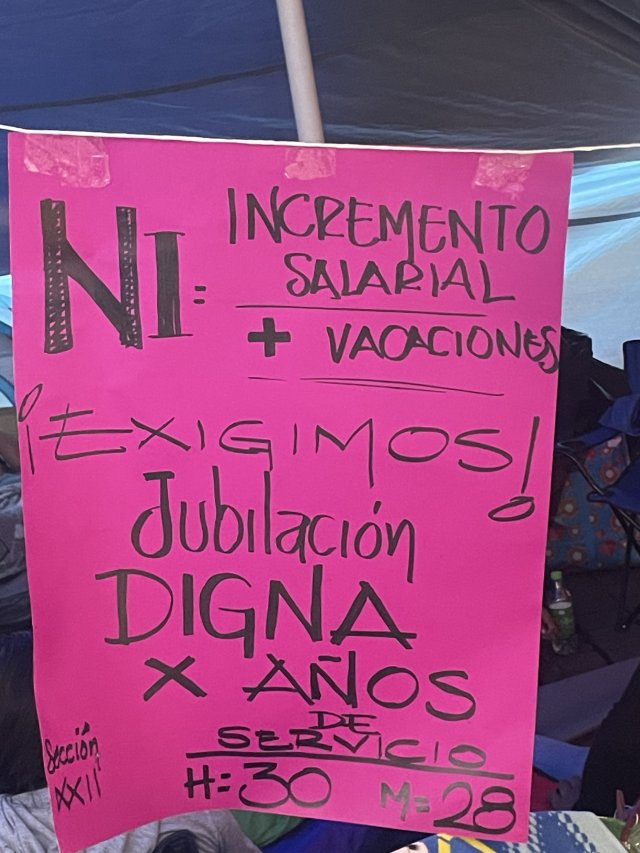 NI: INCREMENTO
SALARIAL
+ VACACIONES
¡EXIGIMOS!
Jubilación
DIGNA
X AÑOS
DE
SERVICIO
H=30 M=28
Sección
XXII